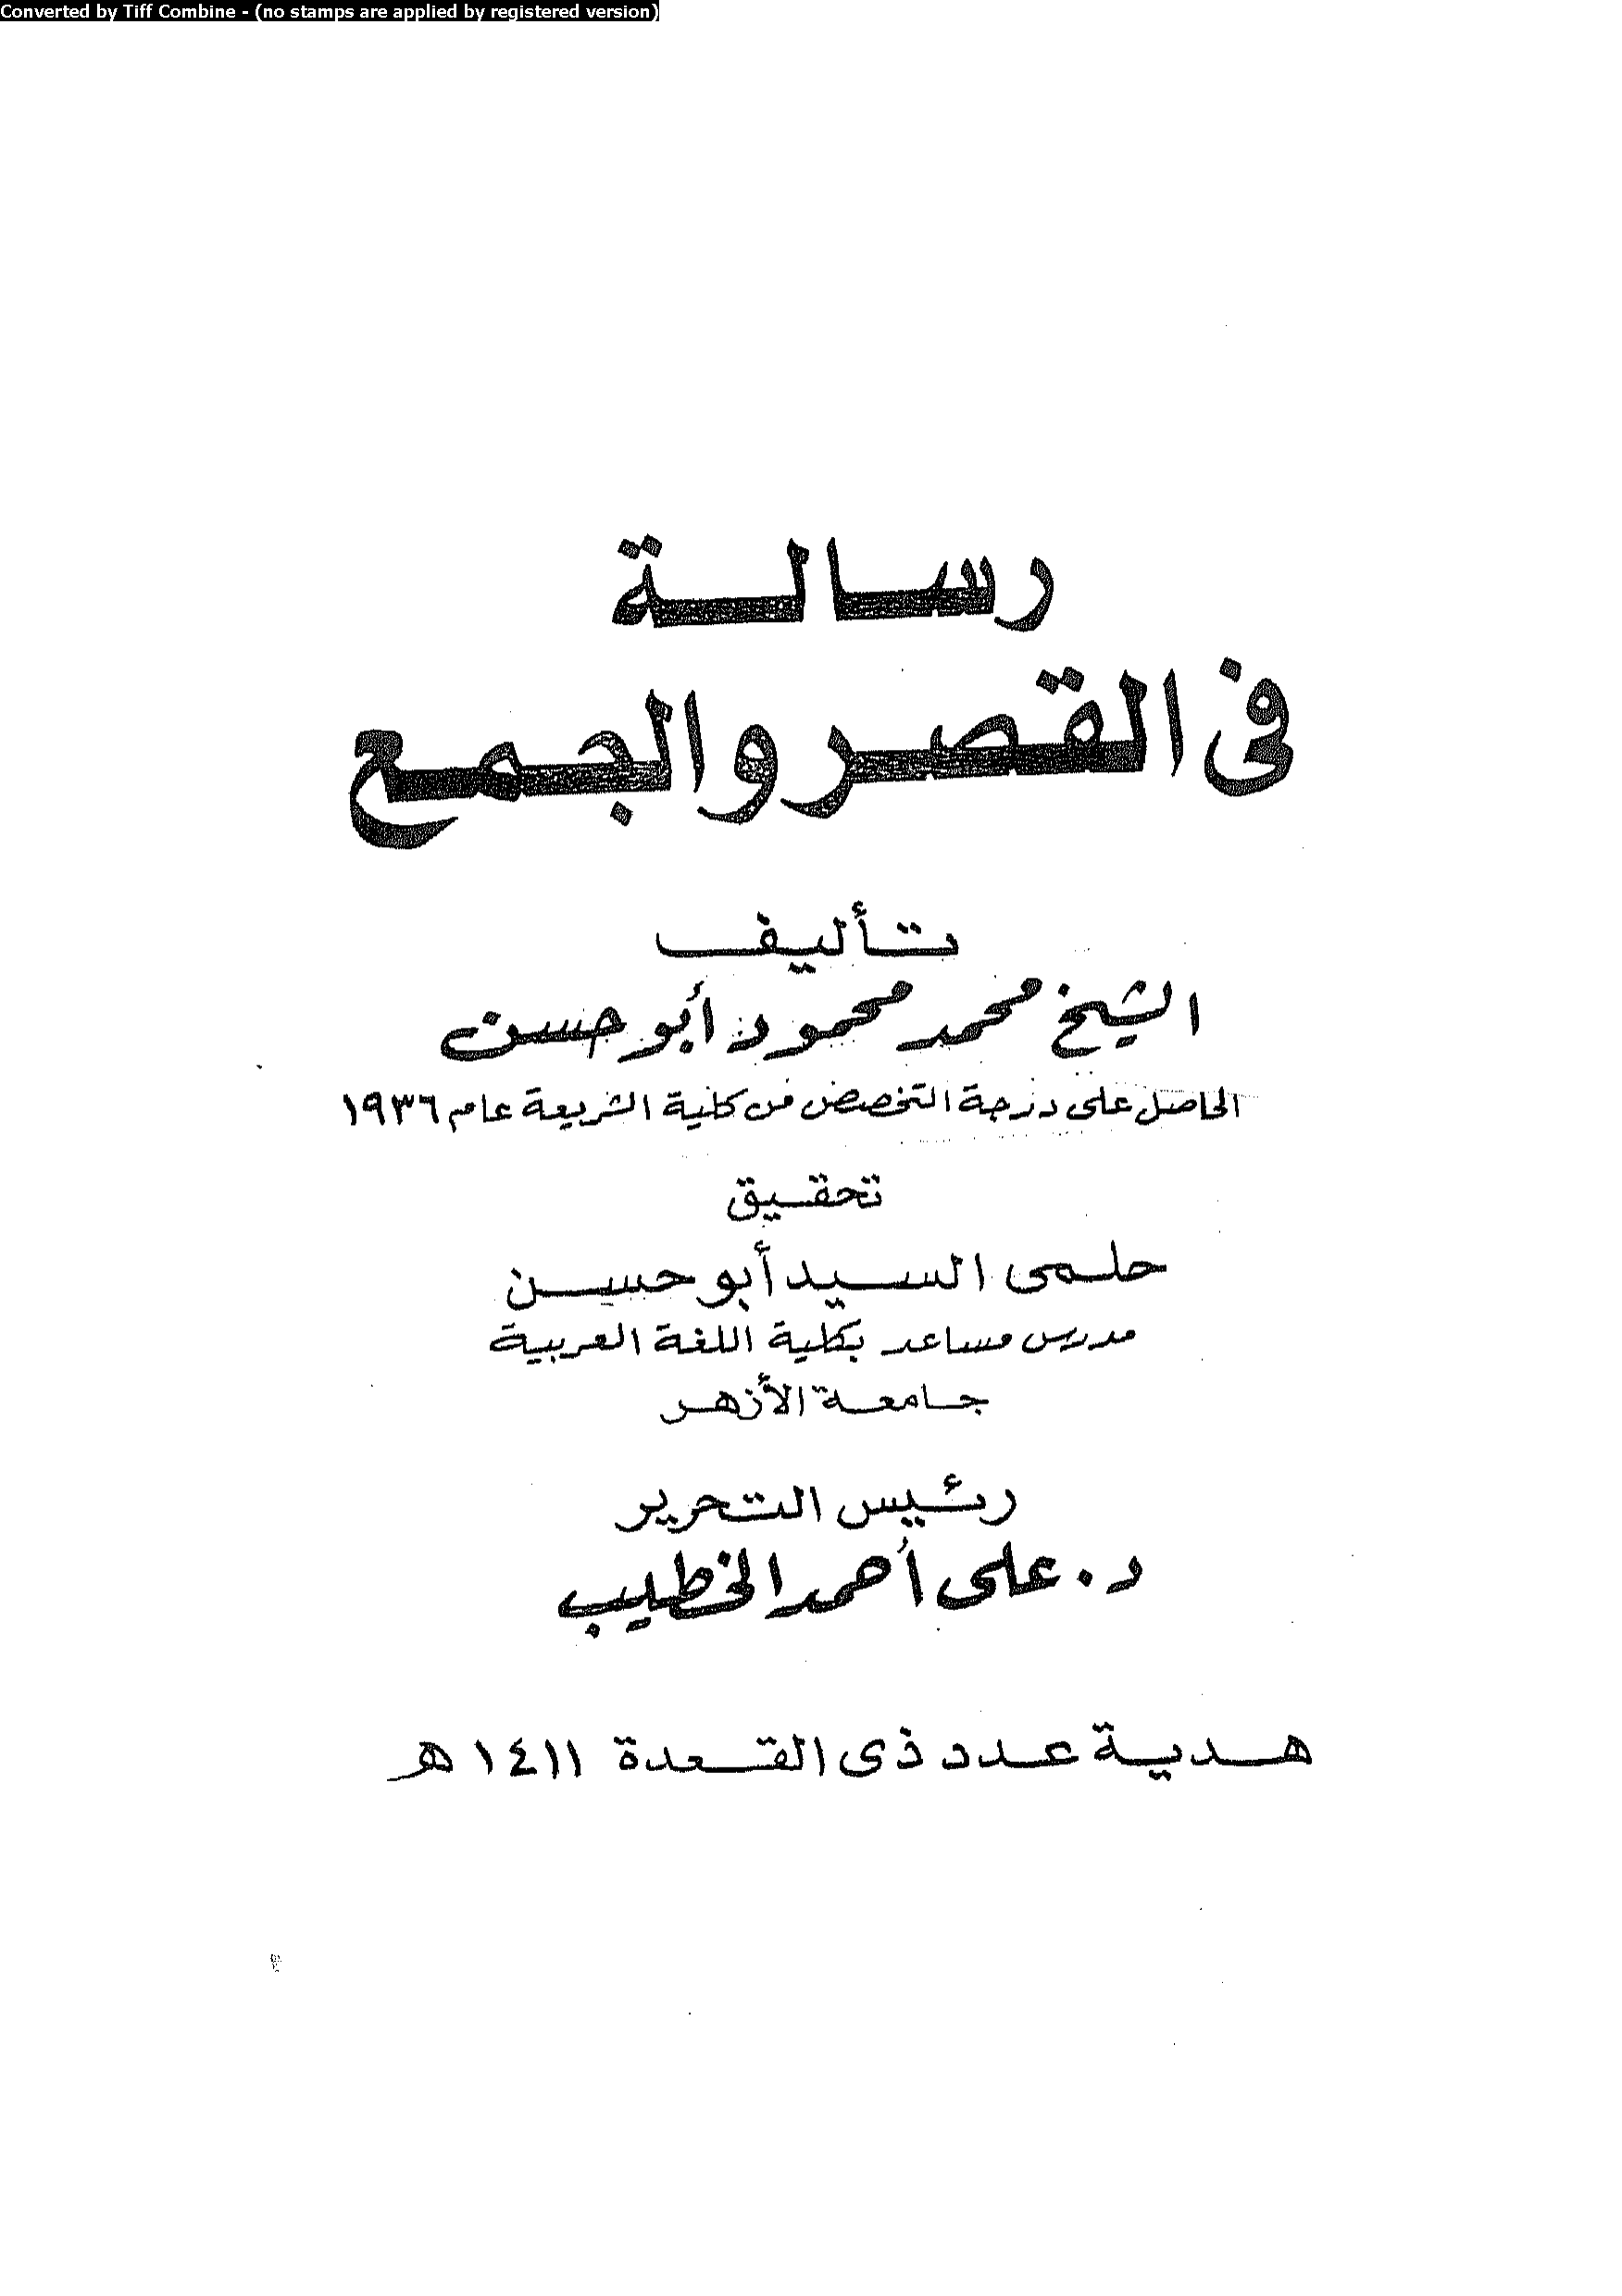 Converted by Tiff Combine - (no stamps are applied by registered version)
رسالة
فى القصر والجمع
تأليف
الشيخ محمد محمود أبو حسن
الحاصل على درجة التخصص من كلية الشريعة عام ١٩٣٦
تحقيق
حلمى السيد أبو حسن
مدرس مساعد بكلية اللغة العربية
جامعة الأزهر
رئيس التحرير
د. على أحمد الخطيب
هدية عدد ذى القعدة ١٤١١ هـ